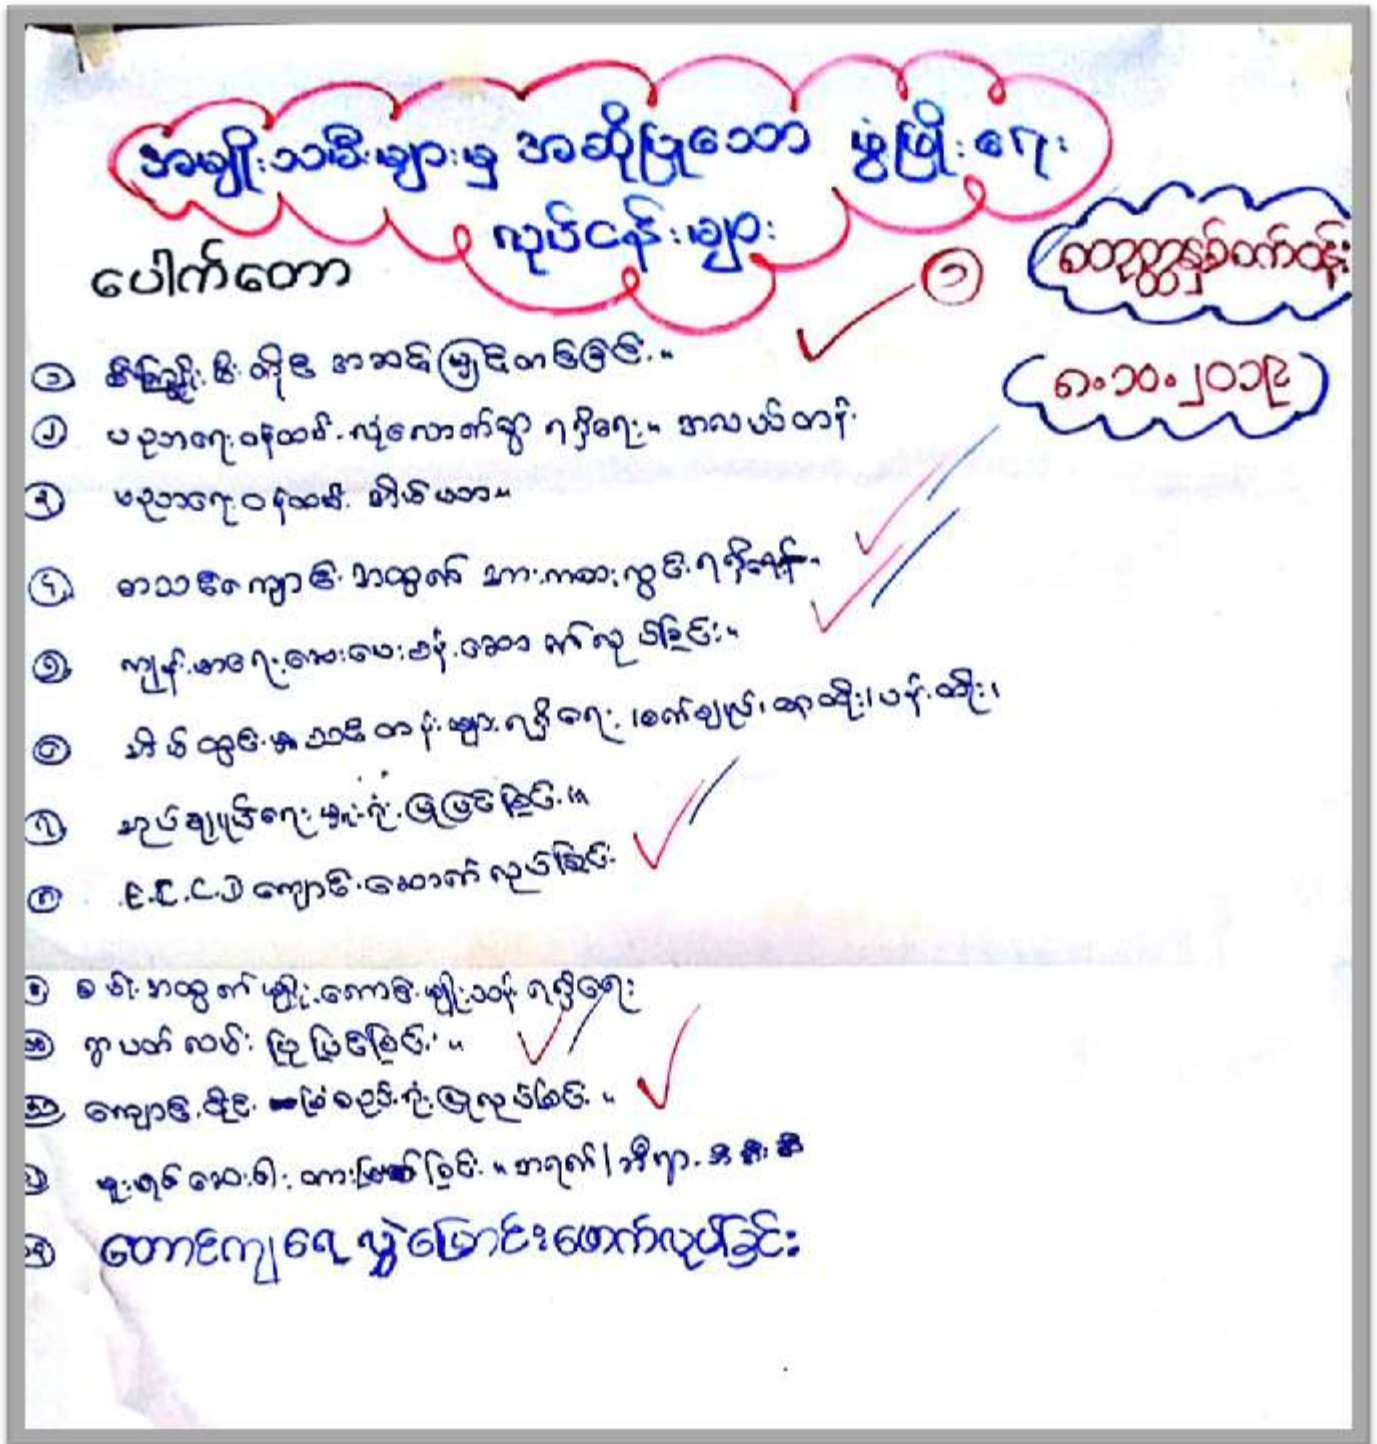 အမျိုးသမီးများမှ အဆိုပြုသော ဖွံ့ဖြိုးရေး
လုပ်ငန်းများ
ပေါက်တော
၁
စတုတ္ထနှစ်စက်ဝန်း
၈.၁၀.၂၀၁၉
၁ မီး တိုင် အဆင့်မြှင့်တင်ခြင်း။
၂ ပညာရေးဝန်ထမ်း လုံလောက်စွာ ရရှိရေး။ အလယ်တန်း
၃ ပညာရေးဝန်ထမ်း အိမ်
၄ စာသင်ကျောင်းအတွက် အားကစားကွင်းရရှိရန်။
၅ ကျန်းမာရေးဆေးပေးခန်းဆောက်လုပ်ခြင်း။
၆ အိမ်တွင်းမှု သင်တန်းများရရှိရေး၊ စက်ချုပ်၊ ဆာထိုး၊ ပန်းထိုး၊
၇ အုပ်ချုပ်ရေးမှူးရုံးပြုပြင်ခြင်း။
၈ E.C.C.D ကျောင်းဆောက်လုပ်ခြင်း
၉ စပါးအတွက် မျိုးကောင်းမျိုးသန့် ရရှိရေး
၁၀ ရွာပတ်လမ်း ပြုပြင်ခြင်း။
၁၁ ကျောင်းဝိုင်း ခြံစည်းရိုးပြုလုပ်ခြင်း။
၁၂ မူးယစ်ဆေးဝါး တားမြစ်ခြင်း။ အရက်/ဘီယာ
၁၃ တောင်ကျရေ လွှဲမြောင်းဖောက်လုပ်ခြင်း